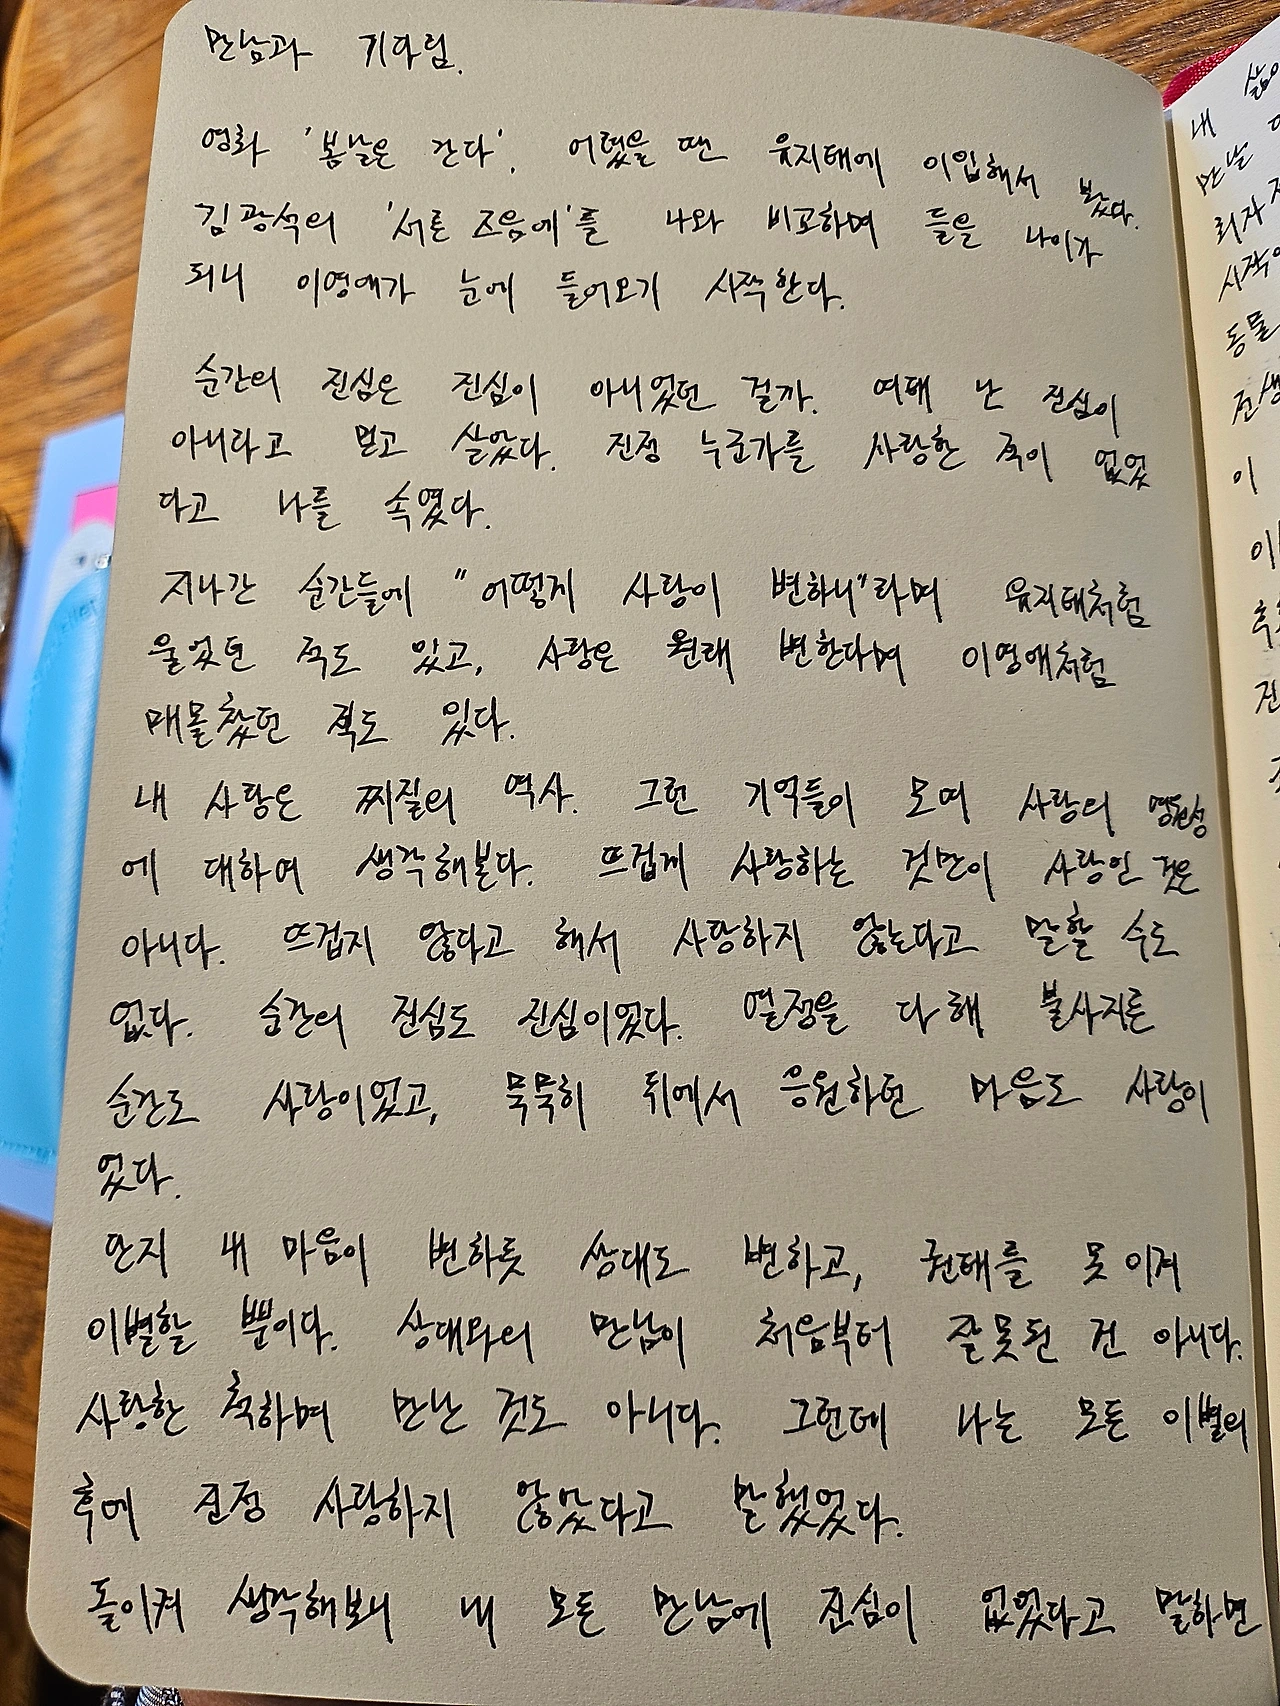 만남과 기다림.
영화 '봄날은 간다'. 어렸을 땐 유지태에 이입해서 봤다.
김광석의 '서른 즈음에'를 나와 비교하며 들을 나이가
되니 이영애가 눈에 들어오기 시작한다.
순간의 진심은 진심이 아니었던 걸까. 여태 난 진심이
아니라고 믿고 살았다. 진정 누군가를 사랑한 적이 없었
다고 나를 속였다.
지나간 순간들에 "어떻게 사랑이 변하니"라며 유지태처럼
울었던 적도 있고, 사랑은 원래 변한다며 이영애처럼
매몰찼던 적도 있다.
내 사랑은 찌질의 역사. 그런 기억들이 모여 사랑의 영원성
에 대하여 생각해본다. 뜨겁게 사랑하는 것만이 사랑인 것은
아니다. 뜨겁지 않다고 해서 사랑하지 않는다고 말할 수도
없다. 순간의 진심도 진심이었다. 열정을 다해 불사지른
순간도 사랑이었고, 묵묵히 뒤에서 응원하던 마음도 사랑이
었다.
단지 내 마음이 변하듯 상대도 변하고, 권태를 못 이겨
이별할 뿐이다. 상대와의 만남이 처음부터 잘못된 건 아니다.
사랑한 척하며 만난 것도 아니다. 그런데 나는 모든 이별의
후에 진정 사랑하지 않았다고 말했었다.
돌이켜 생각해보니 내 모든 만남에 진심이 없었다고 말하면
내
만날
시작
동물
전생
이